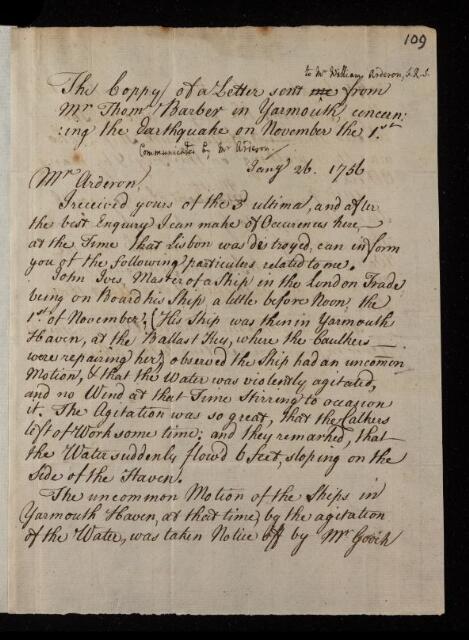 109
to Mr William Arderon, F.R.S.
The Coppy of a Letter sent me from
Mr Thom: Barber in Yarmouth, concern:
:ing the Earthquake on November the 1.st
Communicated by Mr Arderon.
Jany 26. 1756
Mr Arderon,
I received yours of the 3d ultima, and after
the best Enquiry I can make of Occurences here,
at the Time that Lisbon was destroyed, can inform
you of the following particulers related to me.
John Ives, Master of a Ship in the London Trade
being on Board his Ship, a little before Noon, the
1st of November; (His Ship was then in Yarmouth
Haven, at the Ballast Key, where the Caulhers
were repairing her) observed the Ship had an uncommon
Motion, & that the Water was violently agitated,
and no Wind at that Time Stirring to occasion
it. The Agitation was so great, that the Calhers
left of Work some time: and they remarked, that
the Water suddenly flow'd 6 feet, sloping on the
Side of the Haven.
The uncommon Motion of the Ships in
Yarmouth Haven, at that time, by the agitation
of the Water, was taken Notice off by Mr